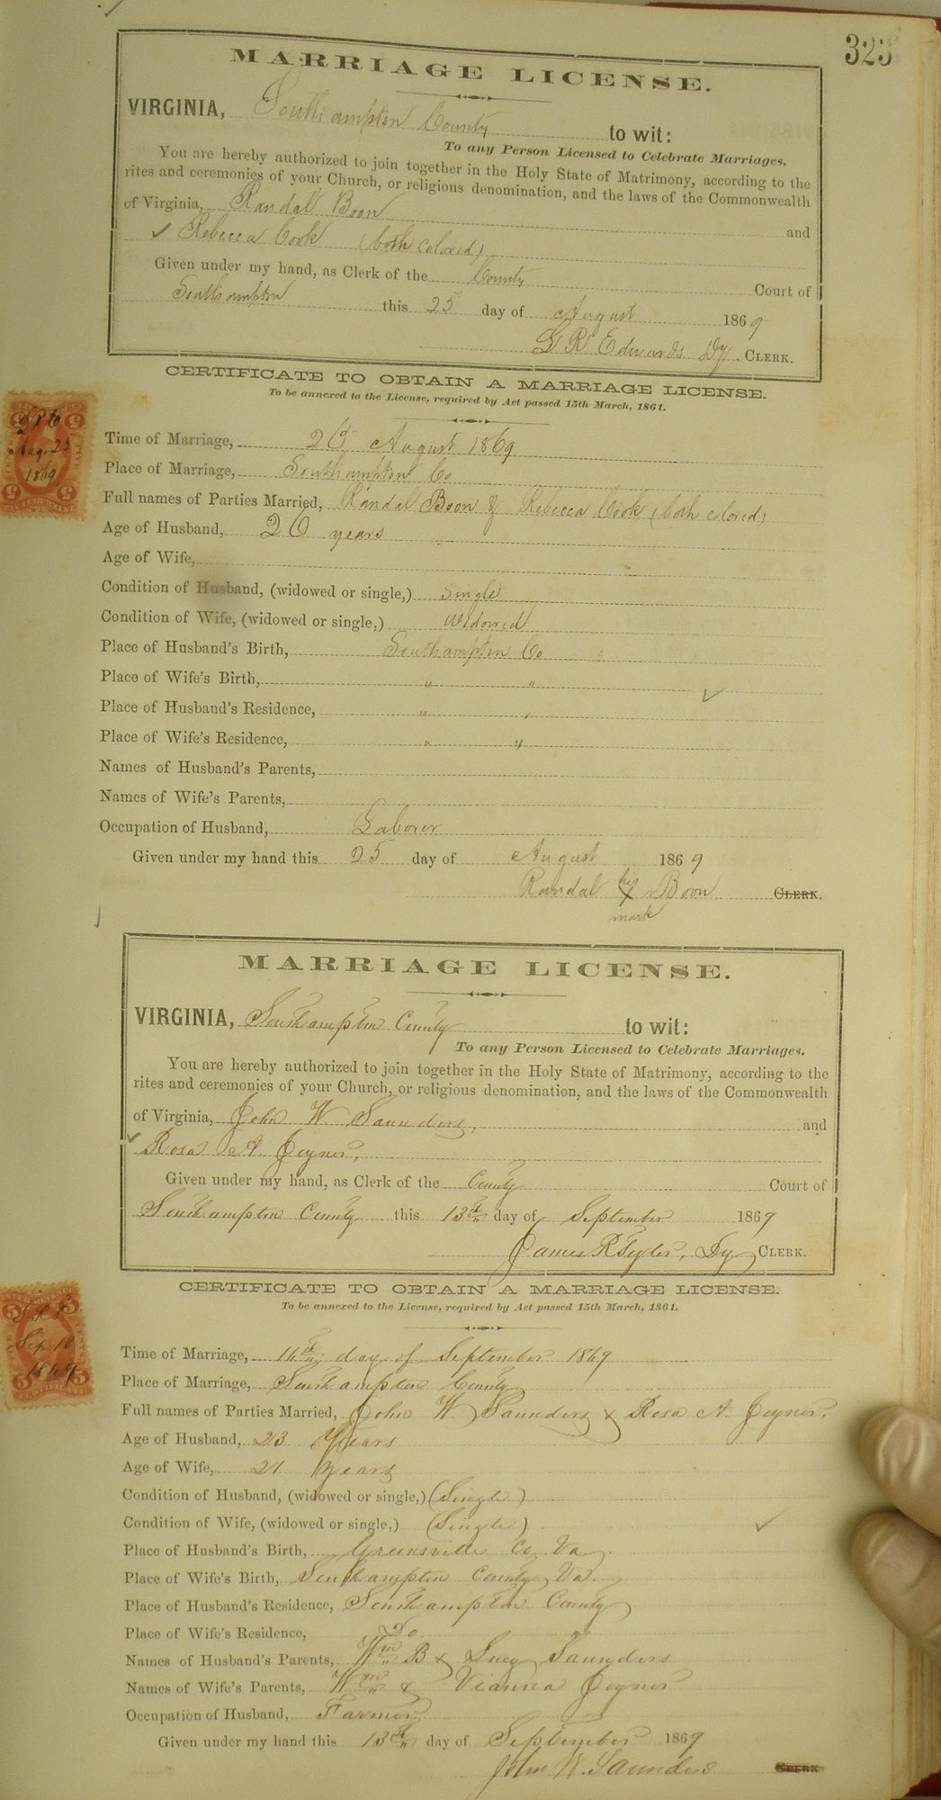 323
MARRIAGE LICENSE.
VIRGINIA, Southampton County to wit:
To any Person Licensed to Celebrate Marriages.
You are hereby authorized to join together in the Holy State of Matrimony, according to the
rites and ceremonies of your Church, or religious denomination, and the laws of the Commonwealth
of Virginia, Randal Boon and
Rebecca Cook (both colored)
Given under my hand, as Clerk of the County Court of
Southampton this 25 day of August 1869
G R Edwards Dy. CLERK.
CERTIFICATE TO OBTAIN A MARRIAGE LICENSE.
To be annexed to the License, required by Act passed 15th March, 1861.
Time of Marriage, August 1869
Place of Marriage, Southampton Co
Full names of Parties Married, Randal Boon & Rebecca Cook (both colored)
Age of Husband, 26 years
Age of Wife,
Condition of Husband, (widowed or single,) Single
Condition of Wife, (widowed or single,) Widowed
Place of Husband's Birth, Southampton Co
Place of Wife's Birth, " "
Place of Husband's Residence, " "
Place of Wife's Residence, " "
Names of Husband's Parents,
Names of Wife's Parents,
Occupation of Husband, Laborer
Given under my hand this 25 day of August 1869
Randal his X Boon CLERK.
mark
Aug. 25
1869
MARRIAGE LICENSE.
VIRGINIA, Southampton County to wit:
To any Person Licensed to Celebrate Marriages.
You are hereby authorized to join together in the Holy State of Matrimony, according to the
rites and ceremonies of your Church, or religious denomination, and the laws of the Commonwealth
of Virginia, John W Saunders, and
Rosa A. Joyner,
Given under my hand, as Clerk of the County Court of
Southampton County this 13th day of September 1869
James R Tyler, Dy CLERK.
CERTIFICATE TO OBTAIN A MARRIAGE LICENSE.
To be annexed to the License, required by Act passed 15th March, 1861.
Time of Marriage, day of September 1869
Place of Marriage, Southampton County
Full names of Parties Married, John W. Saunders & Rosa A. Joyner,
Age of Husband, 23 Years
Age of Wife, 21 Years
Condition of Husband, (widowed or single,) (Single)
Condition of Wife, (widowed or single,) (Single)
Place of Husband's Birth, Greensville Co Va
Place of Wife's Birth, Southampton County Va
Place of Husband's Residence, Southampton County
Place of Wife's Residence, Do
Names of Husband's Parents, Wm B & Lucy Saunders
Names of Wife's Parents, Wm & Joyner
Occupation of Husband, Farmer
Given under my hand this 13th day of September 1869
John W. Saunders CLERK
1869